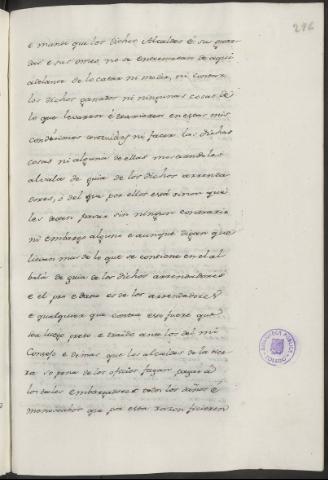 296
e mando que los dichos Alcaldes é su guar
das e sus omes, no se entremetan de aqui
adelante de lo catar ni medir, ni contar
los dichos ganados ni ningunas cosas de
lo que levaren é traxieren en estas mis
condiciones contenidas ni facer las dichas
cosas ni alguna de ellas mostrandoles
alvala de guia de los dichos arrenda
dores, ó del que por ellos está sinon que
le dexen pasar sin ningun contrario
ni embargo alguno e aunque digan que
lievan mas de lo que se contiene en el al
balá de guia de los dichos arrendadores
e el pro e daño es de los arrendadores
e qualquiera que contra esto fuere que
sea luego preso e traido ante los del mi
Consejo e demas que los alcaldes de la tier
ra so pena de los oficios fagan pagar á
los tales embargadores todos los daños é
menoscabos que por esta razon ficieren
BIBLIOTECA PUBLICA
TOLEDO